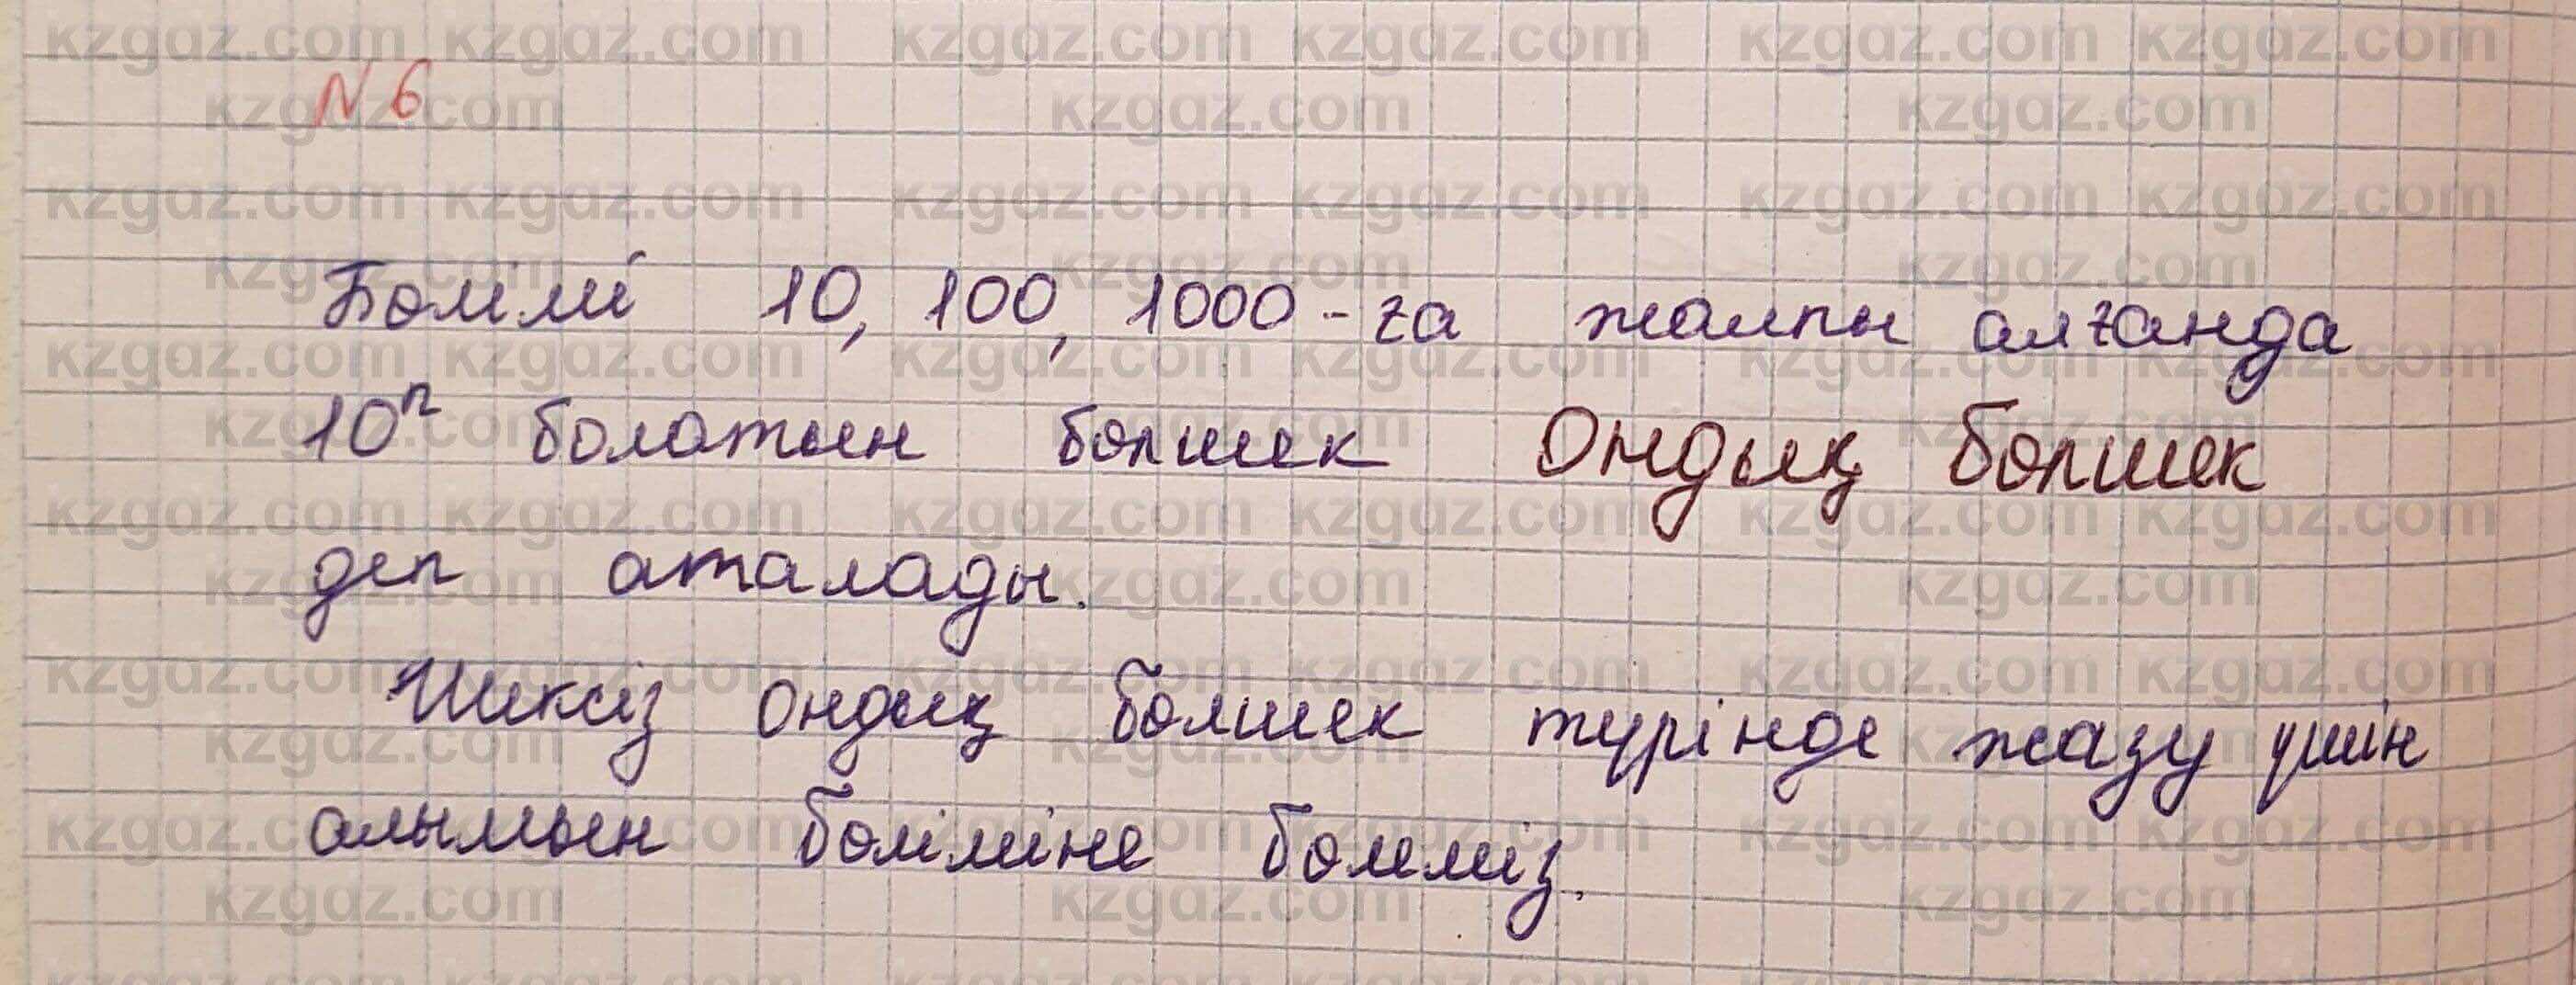 N 6
Бөлімі 10, 100, 1000-ға жалпы алғанда
10ⁿ болатын бөлшек Ондық бөлшек
деп аталады.
Шексіз ондық бөлшек түрінде жазу үшін
алымын бөліміне бөлеміз.